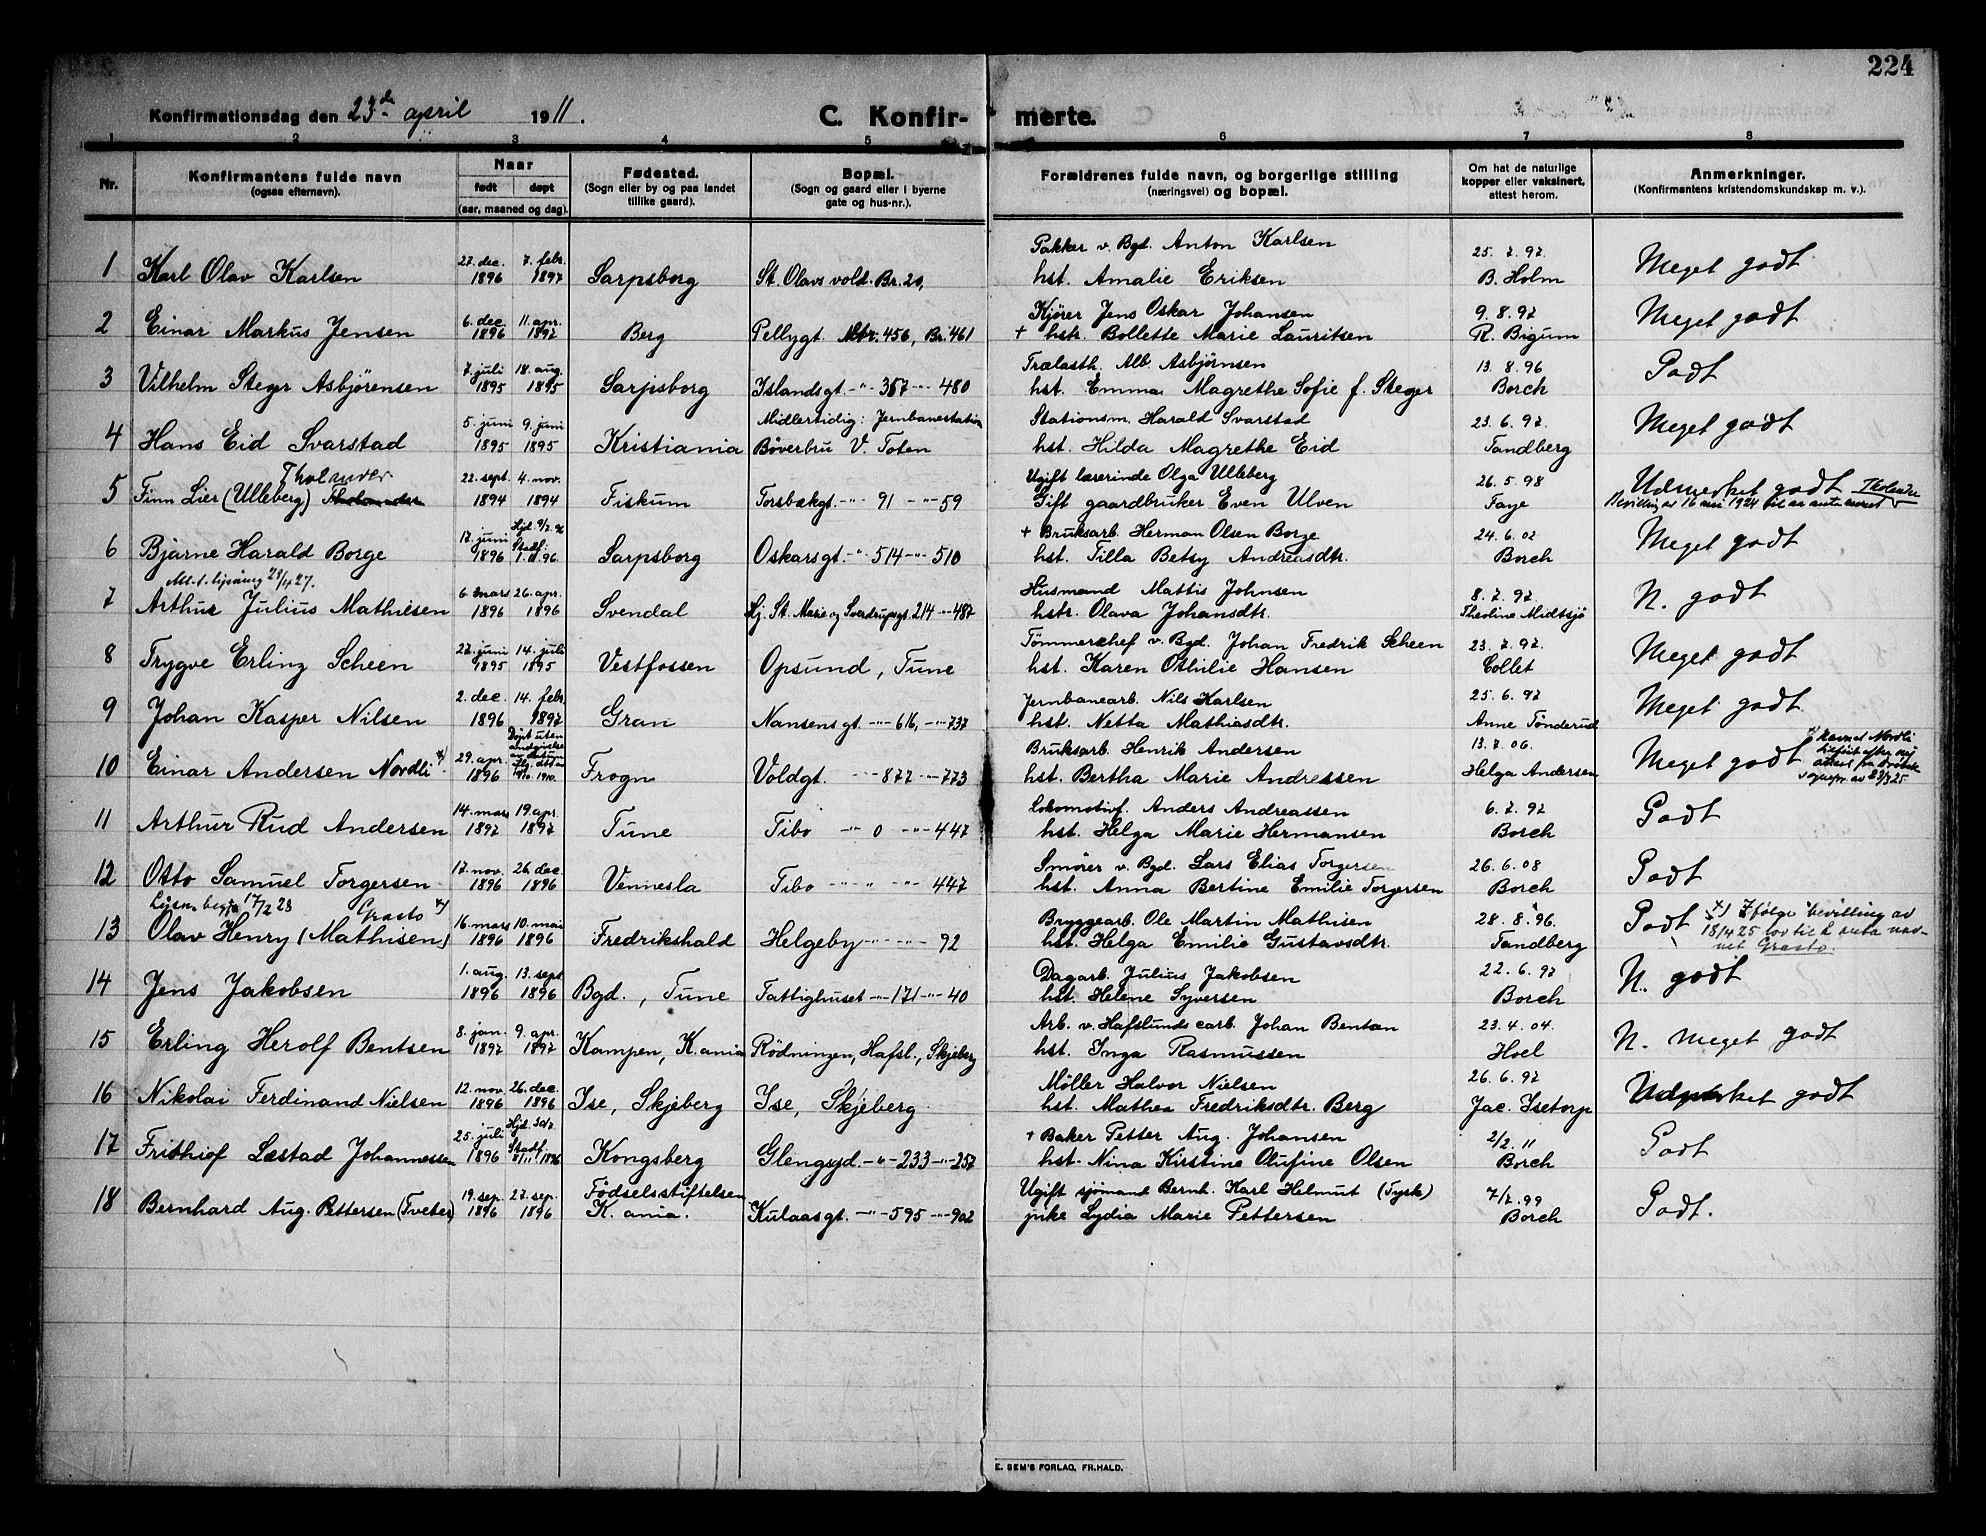 224
Konfirmationsdag den 23de april 1911. C. Konfir- merte.
1 2 3 4 5 6 7 8
Nr. Konfirmantens fulde navn (ogsaa efternavn). Naar født døpt (aar, maaned og dag). Fødested. (Sogn eller by og paa landet tillike gaard). Bopæl. (Sogn og gaard eller i byerne gate og hus-nr.). Forældrenes fulde navn, og borgerlige stilling (næringsvei) og bopæl. Om hat de naturlige kopper eller vaksinert, attest herom. Anmerkninger. (Konfirmantens kristendomskundskap m. v.).
27. dec. 7. febr. Pakker v. Bgd. Anton Karlsen 25.7.97.
1 Karl Olav Karlsen 1896 1897 Sarpsborg St. Olavs vold. Br. 20, hst. Amalie Eriksen B. Holm Meget godt
6. dec. 11. apr. Kjører Jens Oskar Johansen 9.8.97
2 Einar Markus Jensen 1896 1897 Berg Pellygt. Mtr. 456, Br. 461 + hstr. Bollette Marie Lauritsen R. Bigum Meget godt
7. juli 18. aug. Trælasth. Alb. Asbjørnsen 13.8.96
3 Vilhelm Steger Asbjørensen 1895 1895 Sarpsborg Islandsgt. -"- 367 -"- 480 hst. Emma Magrethe Sofie f. Steger Borch Godt
5. juni 9. juni Midlertidig: Jernbanestation Stationsm. Harald Svarstad 23.6.97.
4 Hans Eid Svarstad 1895 1895 Kristiania Bøverbru V. Toten hst. Hilda Magrethe Eid Tandberg Meget godt
Tholander 22. sept. 4. nov. Ugift lærerinde Olga Ulleberg 26.5.98 Udmerket godt Tholander
5 Finn Lier (Ulleberg) Tholander 1894 1894 Fiskum Torsbækgt. -"- 91 -"- 59 Gift gaardbruker Even Ulven Faye Bevilling av 16 mai 1924 til at anta navnet
17. juni Hjd. 9/7.96 + Bruksarb. Herman Olsen Borge 24.6.02
6 Bjarne Harald Borge 1896 Stadf. 1.11.96. Sarpsborg Oskarsgt. -"- 514 -"- 510 hst. Tilla Betsy Andreasdtr. Borch Meget godt
Att. t. lysning 23/4 27. 6 mars 26. apr. Husmand Mattis Johnsen 8.7.97.
7 Arthur Julius Mathiesen 1896 1896 Svendal Hj. St. Marie og Sverdrupsgt. 214 -"- 487 hstr. Olava Johansdtr. Theoline Midtsjø N. godt
27. juni 14. juli Tømmerchef v. Bgd. Johan Fredrik Scheen 23.7.97.
8 Trygve Erling Scheen 1895 1895 Vestfossen Opsund, Tune hst. Karen Othilie Hansen Collet Meget godt
2. dec. 14. febr. Jernbanearb. Nils Karlsen 25.6.97
9 Johan Kasper Nilsen 1896 1897 Gran Nansensgt -"- 616, -"- 737 hst. Netta Mathiasdtr. Anne Tønderud Meget godt.
29. apr. Døpt uten angivelse av datum Bruksarb. Henrik Andersen 13.7.06. x) Navnet Nordli
10 Einar Andersen Nordli x) 1896 9/10 1910. Frogn Voldgt. -"- 877 -"- 773 hst. Bertha Marie Andressen Helga Andersen Meget godt
14. mars 19. apr. Lokomotivf. Anders Andreassen 6.7.97
11 Arthur Rud Andersen 1897 1897 Tune Tibo -"- 0 -"- 447 hst. Helga Marie Hermansen Borch Godt
17. nov. 26. dec. Smører v. Bgd. Lars Elias Torgersen 26.6.08
12 Otto Samuel Torgersen 1896 1896 Vennesla Tibo -"- " -"- 447 hst. Anna Bertine Emilie Torgersen Borch Godt
Lysn. begj. 17/2 28 Grasto x) 16. mars 10. mai Bryggearb. Ole Martin Mathisen 28.8.96. x) Ifølge bevilling av
13 Olav Henry (Mathisen) 1896 1896 Fredrikshald Helgeby -"- -"- 92 hst. Helga Emilie Gustavsdtr. Tandberg Godt 18/4 25 lov til å anta navnet Grasto.
1. aug. 13. sept Dagarb. Julius Jakobsen 22.6.97
14 Jens Jakobsen 1896 1896 Bgd., Tune Fattighuset -"- 171 -"- 40 hst. Helene Syversen Borch N. godt
8. jan. 9. apr. Arb. v. Hafslunds carb. Johan Bentzen 23.4.04.
15 Erling Herolf Bentsen 1897 1897 Kampen, K.ania Rødningen, Hafsl., Skjeberg hst. Inga Rasmussen Hoel N. meget godt
12. nov. 26. dec. Møller Halvor Nielsen 26.6.97
16 Nikolai Ferdinand Nielsen 1896 1896 Ise, Skjeberg Ise, Skjeberg hst. Mathea Fredriksdtr. Berg Jac. Isetorp Udmerket godt
25. juli Hjd. 30/7. + Baker Petter Aug. Johansen 2/2.11
17 Frithiof Læstad Johannessen 1896 Stadf. 8/11 1896 Kongsberg Glengsgd. -"- 233 -"- 257 hst. Nina Kirstine Olufine Olsen Borch Godt
19. sep. 27. sep. Fødselsstiftelsen Ugift sjømand Bernh. Karl Helmut (Tysk) 7/7.99
18 Bernhard Aug. Pettersen (Tveter) 1896 1896 K.ania. Kulaasgt. -"- 595 -"- 902 pike Lydia Marie Pettersen Borch Godt.
E. SEM'S FORLAG, FR.HALD.